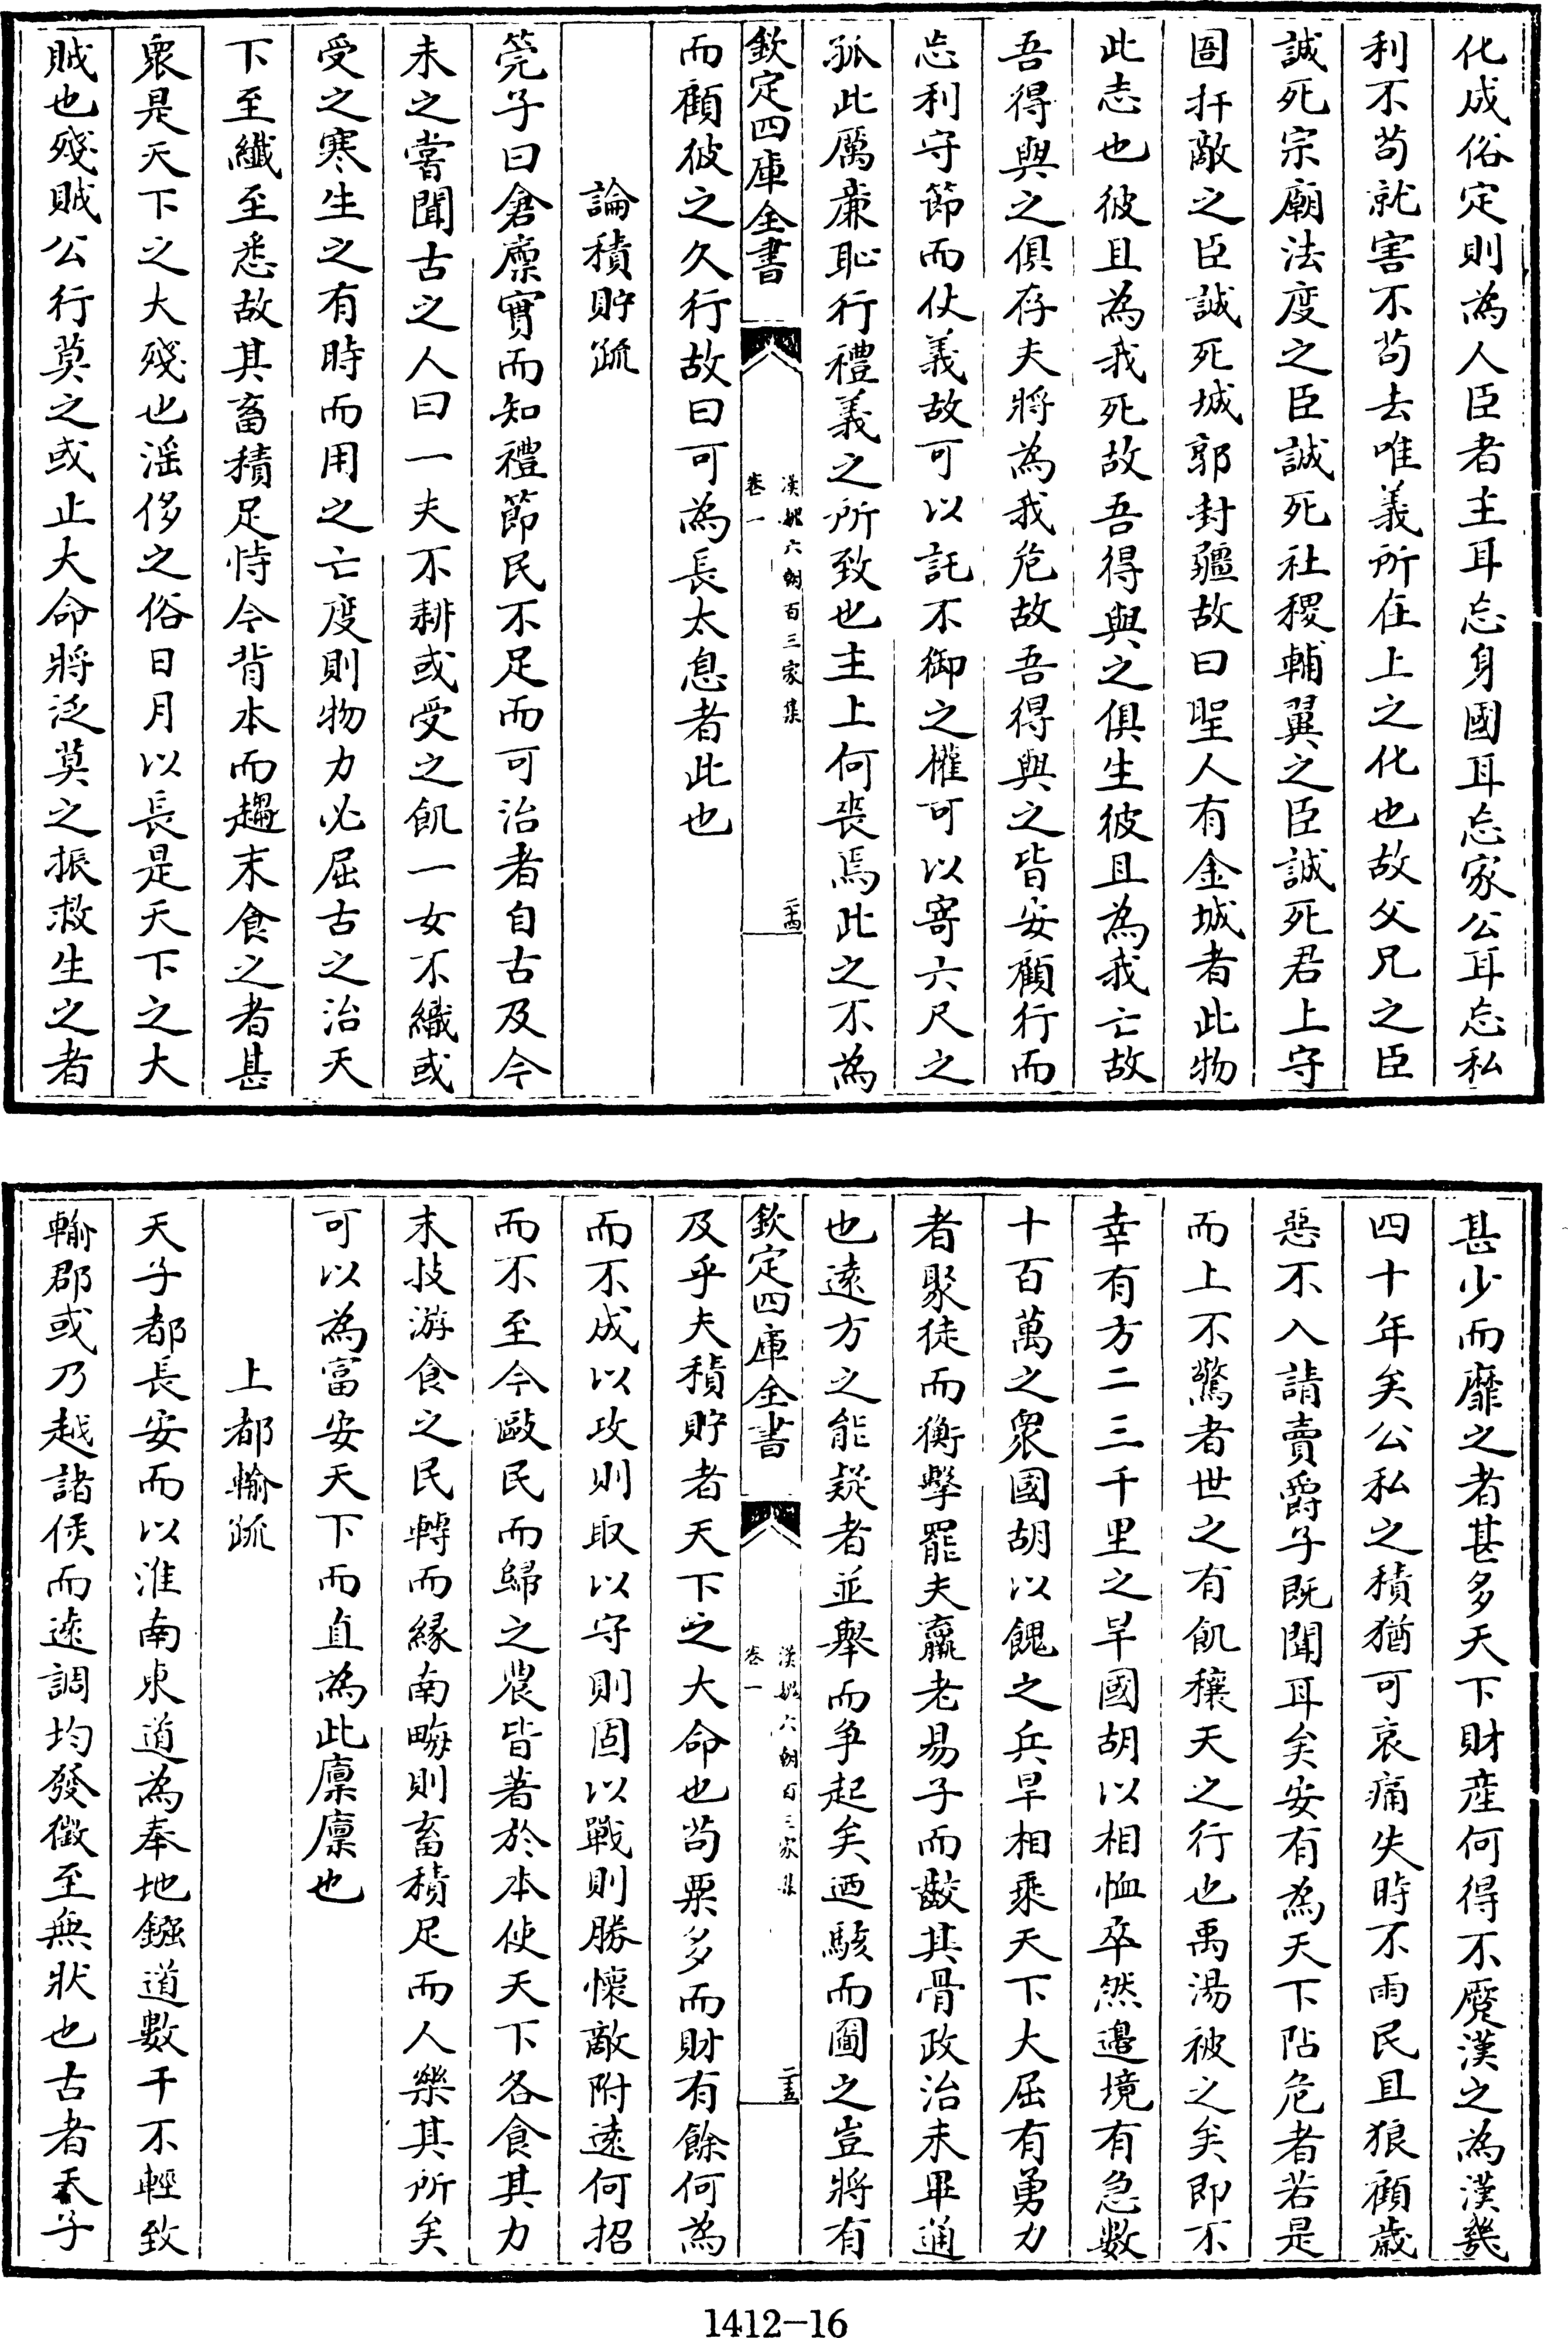 化成俗定則為人臣者主耳忘身國耳忘家公耳忘私
利不苟就害不苟去唯義所在上之化也故父兄之臣
誠死宗廟法度之臣誠死社稷輔翼之臣誠死君上守
圄扞敵之臣誠死城郭封疆故曰聖人有金城者此物
此志也彼且為我死故吾得與之俱生彼且為我亡故
吾得與之俱存夫將為我危故吾得與之皆安顧行而
忘利守節而仗義故可以託不御之權可以寄六尺之
孤此厲廉恥行禮義之所致也主上何喪焉此之不為
欽定四庫全書
漢魏六朝百三家集
卷一
二十四
而顧彼之久行故曰可為長太息者此也
論積貯疏
筦子曰倉廪實而知禮節民不足而可治者自古及今
未之嘗聞古之人曰一夫不耕或受之飢一女不織或
受之寒生之有時而用之亡度則物力必屈古之治天
下至纖至悉故其畜積足恃今背本而趨末食之者甚
衆是天下之大殘也淫侈之俗日月以長是天下之大
賊也殘賊公行莫之或止大命將泛莫之振救生之者
甚少而靡之者甚多天下財産何得不蹷漢之為漢幾
四十年矣公私之積猶可哀痛失時不雨民且狼顧歲
惡不入請賣爵子既聞耳矣安有為天下阽危者若是
而上不驚者世之有飢穰天之行也禹湯被之矣即不
幸有方二三千里之旱國胡以相恤卒然邊境有急數
十百萬之衆國胡以餽之兵旱相乘天下大屈有勇力
者聚徒而衡擊罷夫羸老易子而齩其骨政治未畢通
也遠方之能疑者並舉而爭起矣迺駭而圖之豈將有
欽定四庫全書
漢魏六朝百三家集
卷一
二十五
及乎夫積貯者天下之大命也苟粟多而財有餘何為
而不成以攻則取以守則固以戰則勝懷敵附遠何招
而不至今敺民而歸之農皆著於本使天下各食其力
末技游食之民轉而緣南畮則畜積足而人樂其所矣
可以為富安天下而直為此廪廪也
上都輸疏
天子都長安而以淮南東道為奉地鏹道數千不輕致
輸郡或乃越諸侯而遠調均發徵至無狀也古者天子
1412-16